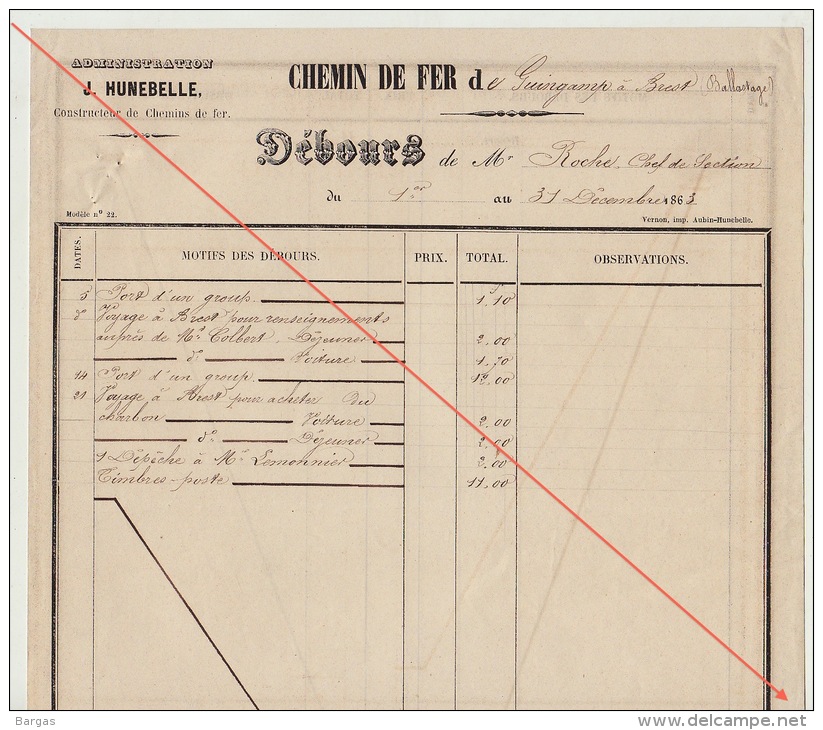 ADMINISTRATION
J. HUNEBELLE,
Constructeur de Chemins de fer.
CHEMIN DE FER de Guingamp à Brest (Ballastage)
Débours de Mr Roche, Chef de Section
du 1er au 31 Décembre 1863.
Modèle no 22.
Vernon, imp. Aubin-Hunebelle.
DATES. MOTIFS DES DÉBOURS. PRIX. TOTAL. OBSERVATIONS.
5 Port d'un group. 1,10
8 Voyage à Brest pour renseignements
auprès de Mr Colbert. Déjeuner 2,00
do Voiture 1,70
14 Port d'un group. 12,00
21 Voyage à Brest pour acheter du
charbon Voiture 2,00
do Déjeuner 2,00
1 Dépêche à Mr Lemonnier 2,00
Timbres-poste 11,00
Bargas
delcampe.net